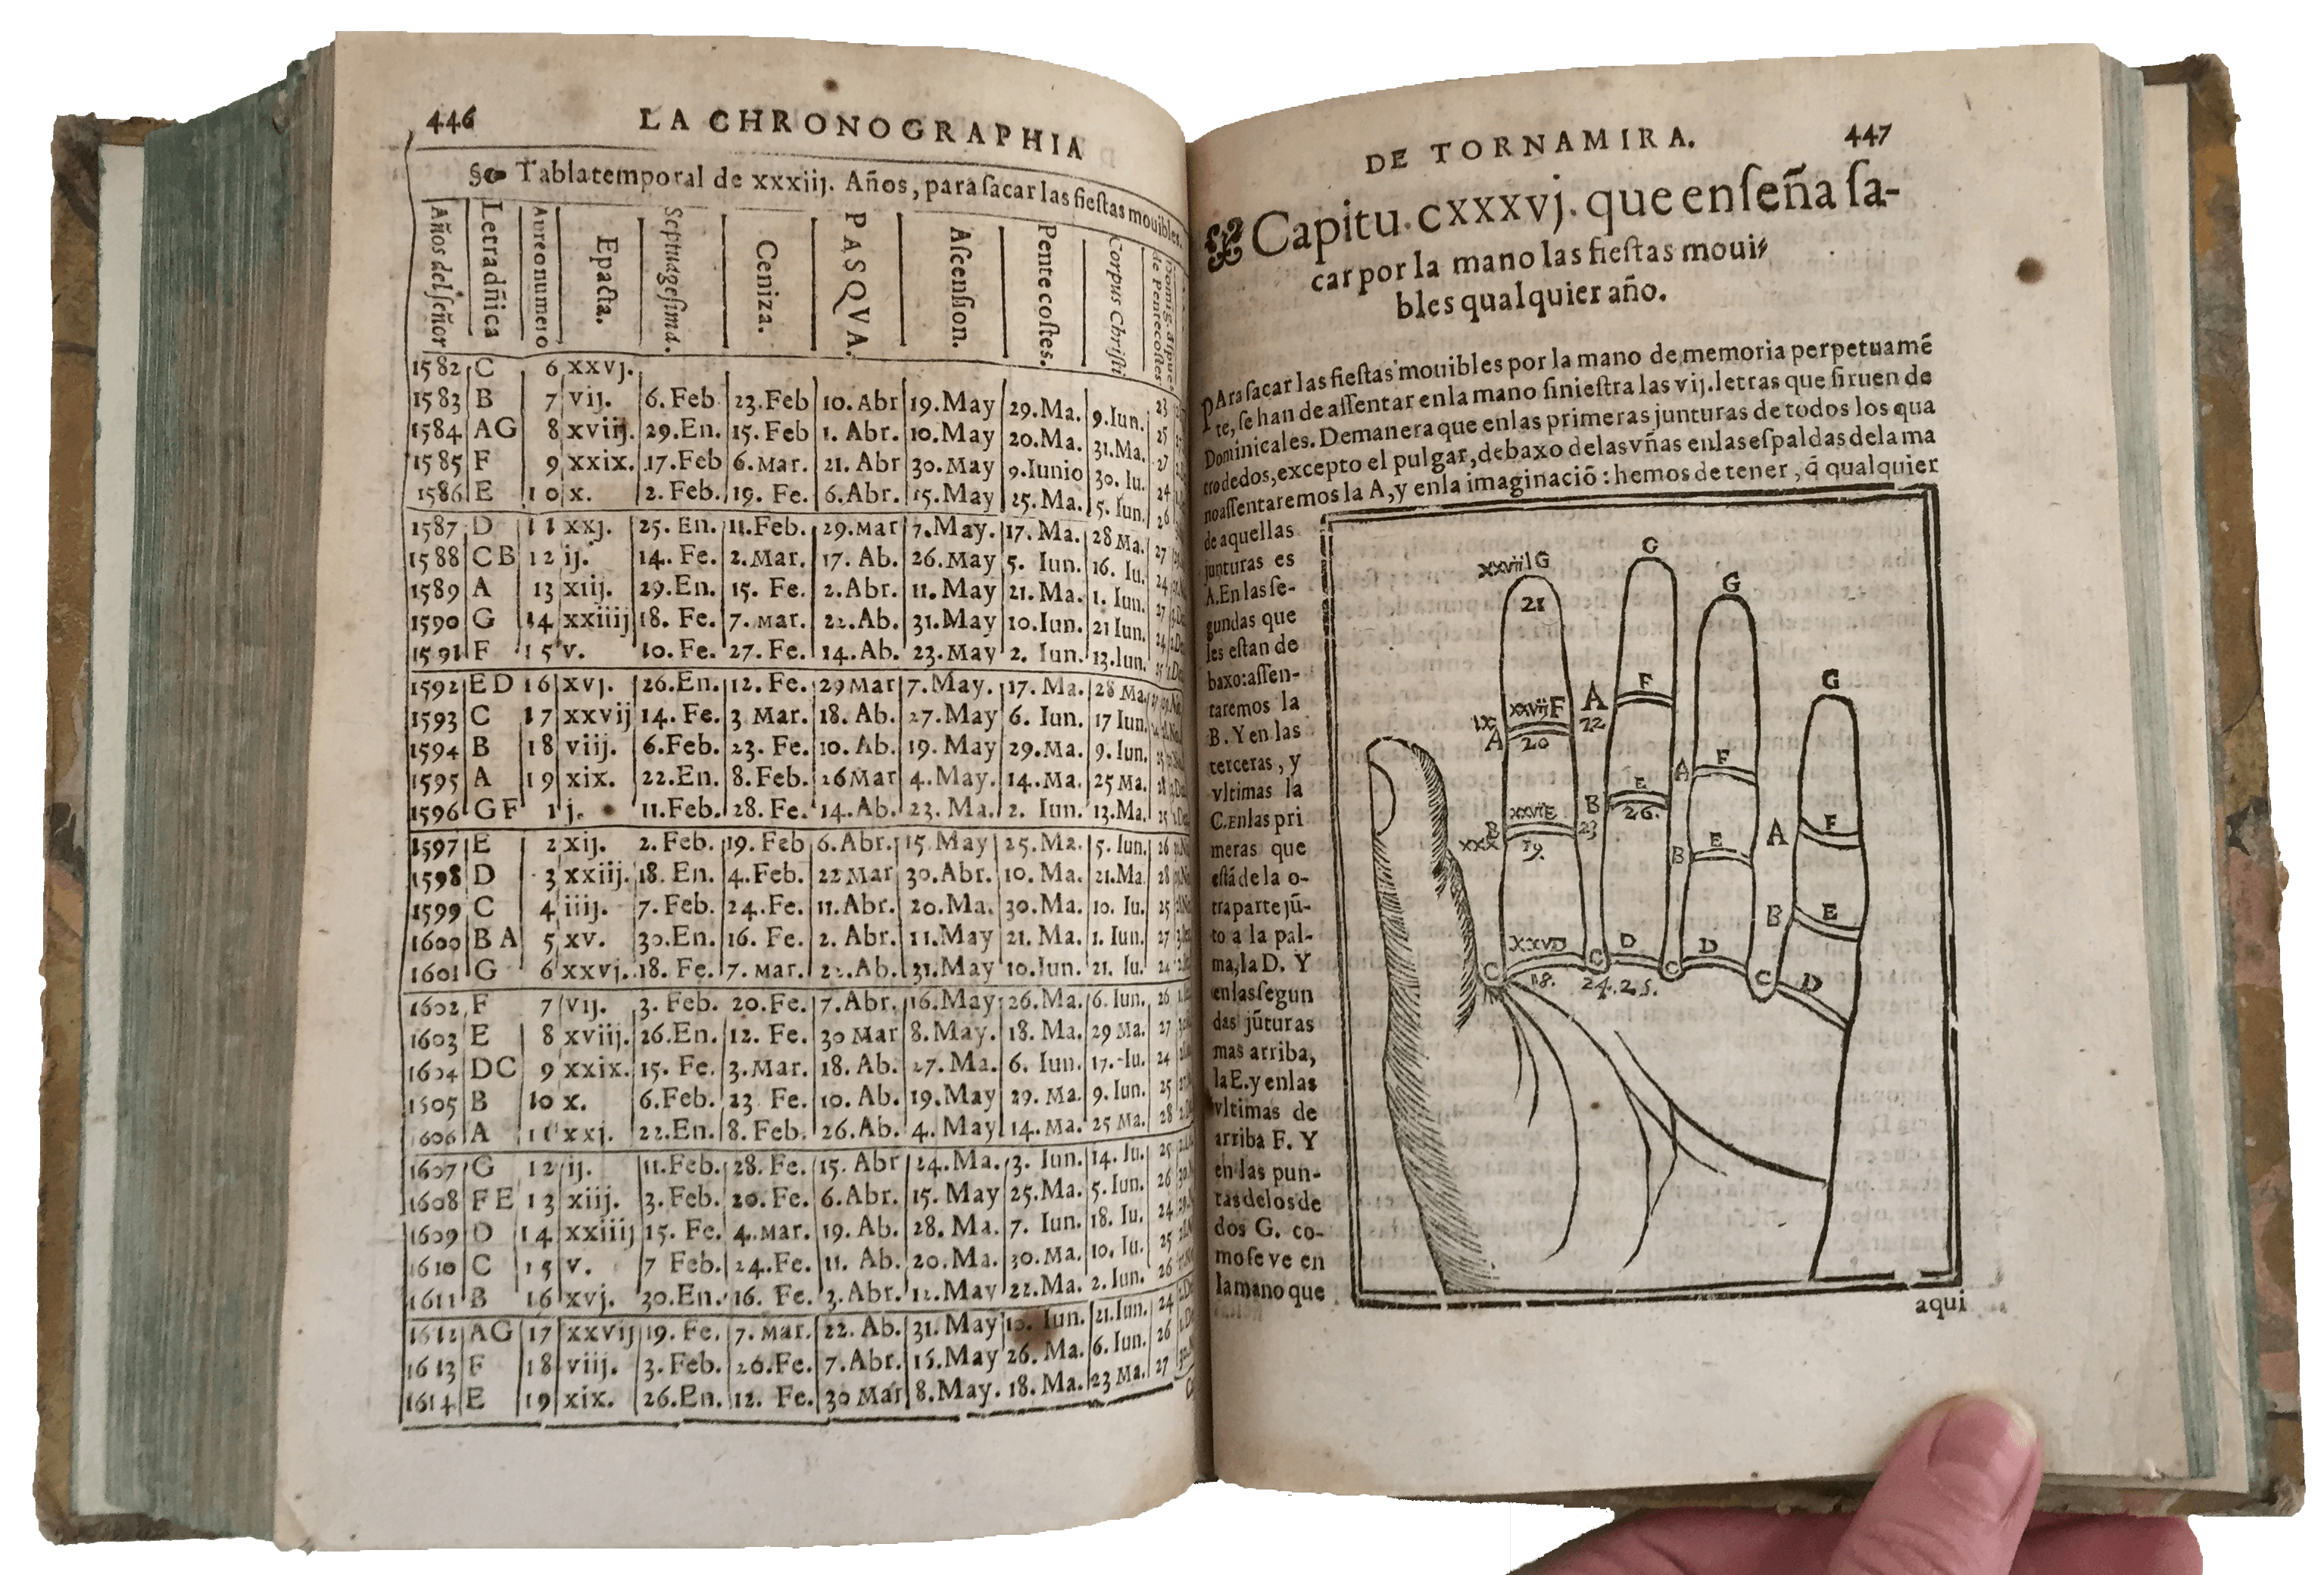 446 LA CHRONOGRAPHIA
Tabla temporal de xxxiij. Años, para ſacar las fieſtas mouibles.
Años del ſeñor Letra dñica Aureo numero Epacta. Septuageſima. Ceniza. PASQVA. Aſcenſion. Pentecoſtes. Corpus Chriſti
1582 C 6 xxvj.
1583 B 7 vij. 6. Feb 23. Feb 10. Abr 19. May 29. Ma. 9. Iun. 23
1584 AG 8 xviij. 29. En. 15. Feb 1. Abr. 10. May 20. Ma. 31. Ma. 25
1585 F 9 xxix. 17. Feb 6. Mar. 21. Abr 30. May 9. Iunio 30. Iu. 27
1586 E 10 x. 2. Feb. 19. Fe. 6. Abr. 15. May 25. Ma. 5. Iun. 24
1587 D 11 xxj. 25. En. 11. Feb. 29. Mar 7. May. 17. Ma. 28 Ma. 27
1588 CB 12 ij. 14. Fe. 2. Mar. 17. Ab. 26. May 5. Iun. 16. Iu. 24
1589 A 13 xiij. 29. En. 15. Fe. 2. Abr. 11. May 21. Ma. 1. Iun. 27
1590 G 14 xxiiij 18. Fe. 7. Mar. 22. Ab. 31. May 10. Iun. 21 Iun. 24
1591 F 15 v. 10. Fe. 27. Fe. 14. Ab. 23. May 2. Iun. 13. Iun. 25
1592 ED 16 xvj. 26. En. 12. Fe. 29 Mar 7. May. 17. Ma. 28 Ma. 27
1593 C 17 xxvij 14. Fe. 3 Mar. 18. Ab. 27. May 6. Iun. 17 Iun. 24
1594 B 18 viij. 6. Feb. 23. Fe. 10. Ab. 19. May 29. Ma. 9. Iun. 25
1595 A 19 xix. 22. En. 8. Feb. 26 Mar 4. May. 14. Ma. 25 Ma. 28
1596 GF 1 j. 11. Feb. 28. Fe. 14. Ab. 23. Ma. 2. Iun. 13. Ma. 25
1597 E 2 xij. 2. Feb. 19. Feb 6. Abr. 15 May 25. Ma. 5. Iun. 26
1598 D 3 xxiij. 18. En. 4. Feb. 22 Mar 30. Abr. 10. Ma. 21. Ma 28
1599 C 4 iiij. 7. Feb. 24. Fe. 11. Abr. 20. Ma. 30. Ma. 10. Iu. 25
1600 BA 5 xv. 30. En. 16. Fe. 2. Abr. 11. May 21. Ma. 1. Iun. 27
1601 G 6 xxvj. 18. Fe. 7. Mar. 22. Ab. 31. May 10. Iun. 21. Iu. 24
1602 F 7 vij. 3. Feb. 20. Fe. 7. Abr. 16. May 26. Ma. 6. Iun. 26
1603 E 8 xviij. 26. En. 12. Fe. 30 Mar 8. May. 18. Ma. 29 Ma. 27
1604 DC 9 xxix. 15. Fe. 3. Mar. 18. Ab. 27. Ma. 6. Iun. 17. Iu. 24
1605 B 10 x. 6. Feb. 23 Fe. 10. Ab. 19. May 29. Ma. 9. Iun. 25
1606 A 11 xxj. 22. En. 8. Feb. 26. Ab. 4. May 14. Ma. 25 Ma. 28
1607 G 12 ij. 11. Feb. 28. Fe. 15. Abr 24. Ma. 3. Iun. 14. Iu. 25
1608 FE 13 xiij. 3. Feb. 20. Fe. 6. Abr. 15. May 25. Ma. 5. Iun. 26
1609 D 14 xxiiij 15. Fe. 4. Mar. 19. Ab. 28. Ma. 7. Iun. 18. Iu. 24
1610 C 15 v. 7 Feb. 24. Fe. 11. Ab. 20. Ma. 30. Ma. 10. Iu. 25
1611 B 16 xvj. 30. En. 16. Fe. 3. Abr. 12. May 22. Ma. 2. Iun. 26
1612 AG 17 xxvij 19. Fe. 7. Mar. 22. Ab. 31. May 10. Iun. 21. Iun. 24
1613 F 18 viij. 3. Feb. 20. Fe. 7. Abr. 16. May 26. Ma. 6. Iun. 26
1614 E 19 xix. 26. En. 12. Fe. 30 Mar 8. May. 18. Ma. 23 Ma. 27
DE TORNAMIRA. 447
Capitu. cxxxvj. que enſeña ſa-
car por la mano las fieſtas moui-
bles qualquier año.
PAra ſacar las fieſtas mouibles por la mano de memoria perpetuamẽ
te, ſe han de aſſentar en la mano ſinieſtra las vij. letras que ſiruen de
Dominicales. De manera que en las primeras junturas de todos los qua
tro dedos, excepto el pulgar, debaxo de las vñas en las eſpaldas de la ma
no aſſentaremos la A, y en la imaginaciõ: hemos de tener, q̃ qualquier
de aquellas
junturas es
A. En las ſe-
gundas que
les eſtan de
baxo: aſſen-
taremos la
B. Y en las
terceras, y
vltimas la
C. En las pri
meras que
eſtã de la o-
tra parte jũ-
to a la pal-
ma, la D. Y
en las ſegun
das jũturas
mas arriba,
la E. y en las
vltimas de
arriba F. Y
en las pun-
tas de los de
dos G. co-
mo ſe ve en
la mano que
xxviij G G G G
21
xxvij F A F
ix A 20 22
A F
xxvj E B E
xxx B 19. 23 26.
B E A F
B E
xxv D C D C D C D
C 18. 24. 25.
aqui